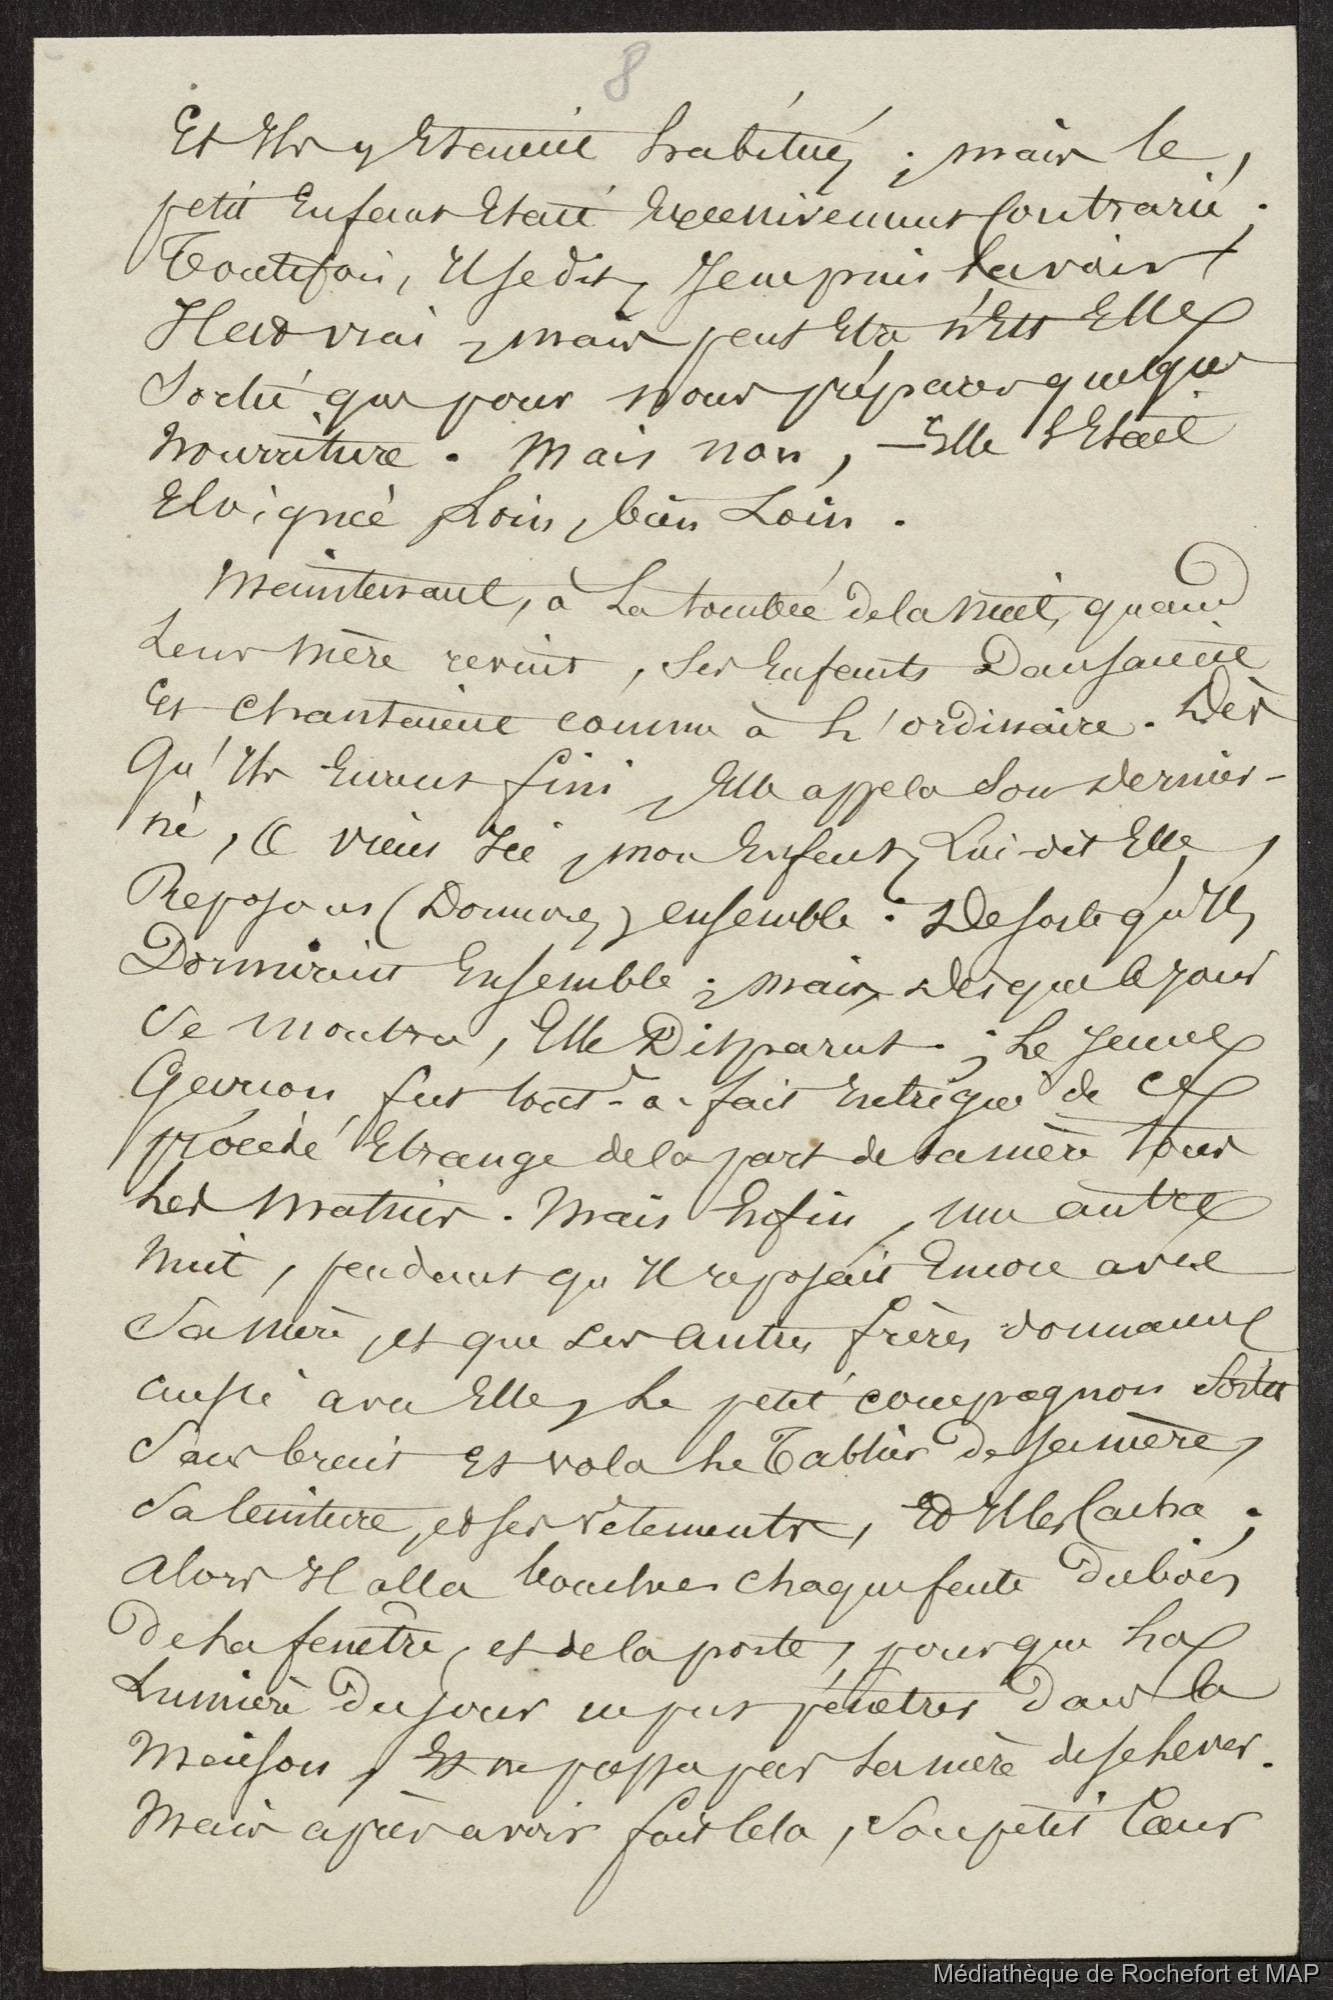 8
Et Ils y Etaient habitués ; mais le,
petit Enfant Etait Excessivement Contrarié ;
Toutefois, Il se dit, Je ne puis la voir
Il est vrai, mais peut Etre n'Est Elle
Sortie que pour nous préparer quelque
Nourriture. Mais non, — Elle S'Etait
Eloignée Loin, bien Loin.
Maintenant, à La tombée de la Nuit, quand
Leur Mère revint, Ses Enfants Dansaient
Et Chantaient comme à L'ordinaire. Dès
Qu'Ils Eurent fini, Elle appela Son dernier-
né, O viens Ici, mon Enfant, Lui dit Elle,
Reposons (Dormons) ensemble. De sorte qu'Ils
Dormirent Ensemble ; mais, dès que le jour
Se montra, Elle Disparut. ; Le Jeune
Garçon fut tout-à-fait Intrigué de Ce
procédé Etrange de la part de sa mère tous
Les Matins. Mais Enfin, une autre
Nuit, pendant qu'Il reposait Encore avec
Sa Mère, et que Les Autres frères dormaient
aussi avec Elle, Le petit compagnon Sortit
Sans bruit Et vola Le Tablier De Sa mère,
Sa Ceinture, et Ses vêtements, Et Il les Cacha ;
Alors Il alla boucher chaque fente Du bois
De La fenêtre, et de la porte, pour que La
Lumière Du jour ne put pénétrer Dans la
Maison, Et ne pressa pas Sa mère de se lever.
Mais après avoir fait Cela, Son petit Cœur
Médiathèque de Rochefort et MAP